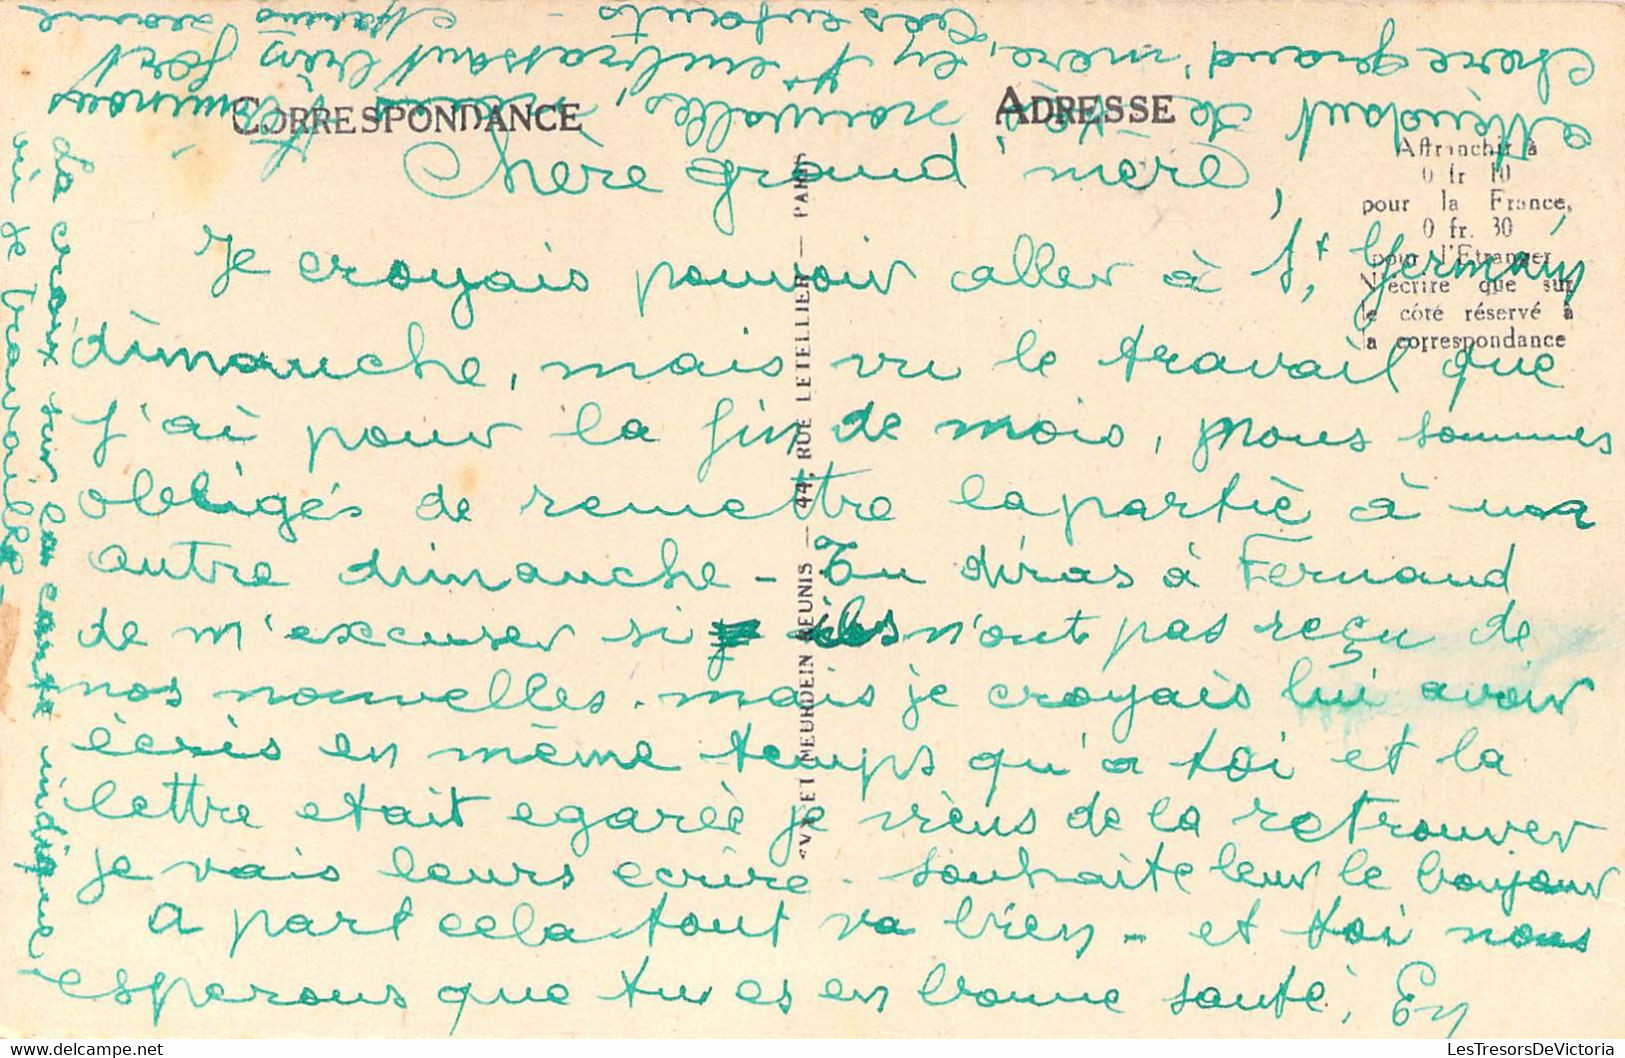 CORRESPONDANCE
ADRESSE
Affranchir à
0 fr 10
pour la France,
0 fr. 30
pour l'Etranger
N'écrire que sur
le côté réservé à
la correspondance
LEVY ET NEURDEIN REUNIS — 44, RUE LETELLIER — PARIS
Chère grand'mère,
Je croyais pouvoir aller à St Germain
dimanche, mais vu le travail que
j'ai pour la fin de mois, nous sommes
obligés de remettre la partie à un
autre dimanche - Tu diras à Fernand
de m'excuser si ils n'ont pas reçu de
nos nouvelles. mais je croyais lui avoir
écris en même temps qu'a toi et la
lettre etait egarée je viens de la retrouver
je vais leurs ecrire. souhaite leur le bonjour
A part cela tout va bien - et toi nous
esperons que tu es en bonne santé, En
attendant de tes nouvelles, reçois
chere grand'mère, en t'embrassant bien fort
tes enfants -
La croix sur la carte indique
où je travaille -
LesTresorsDeVictoria.com